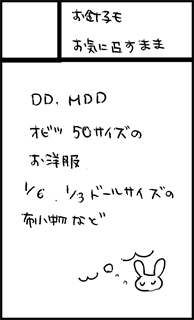 お針子も
お気に召すまま
DD、MDD
オビツ50サイズの
お洋服
1/6、1/3ドールサイズの
布小物など